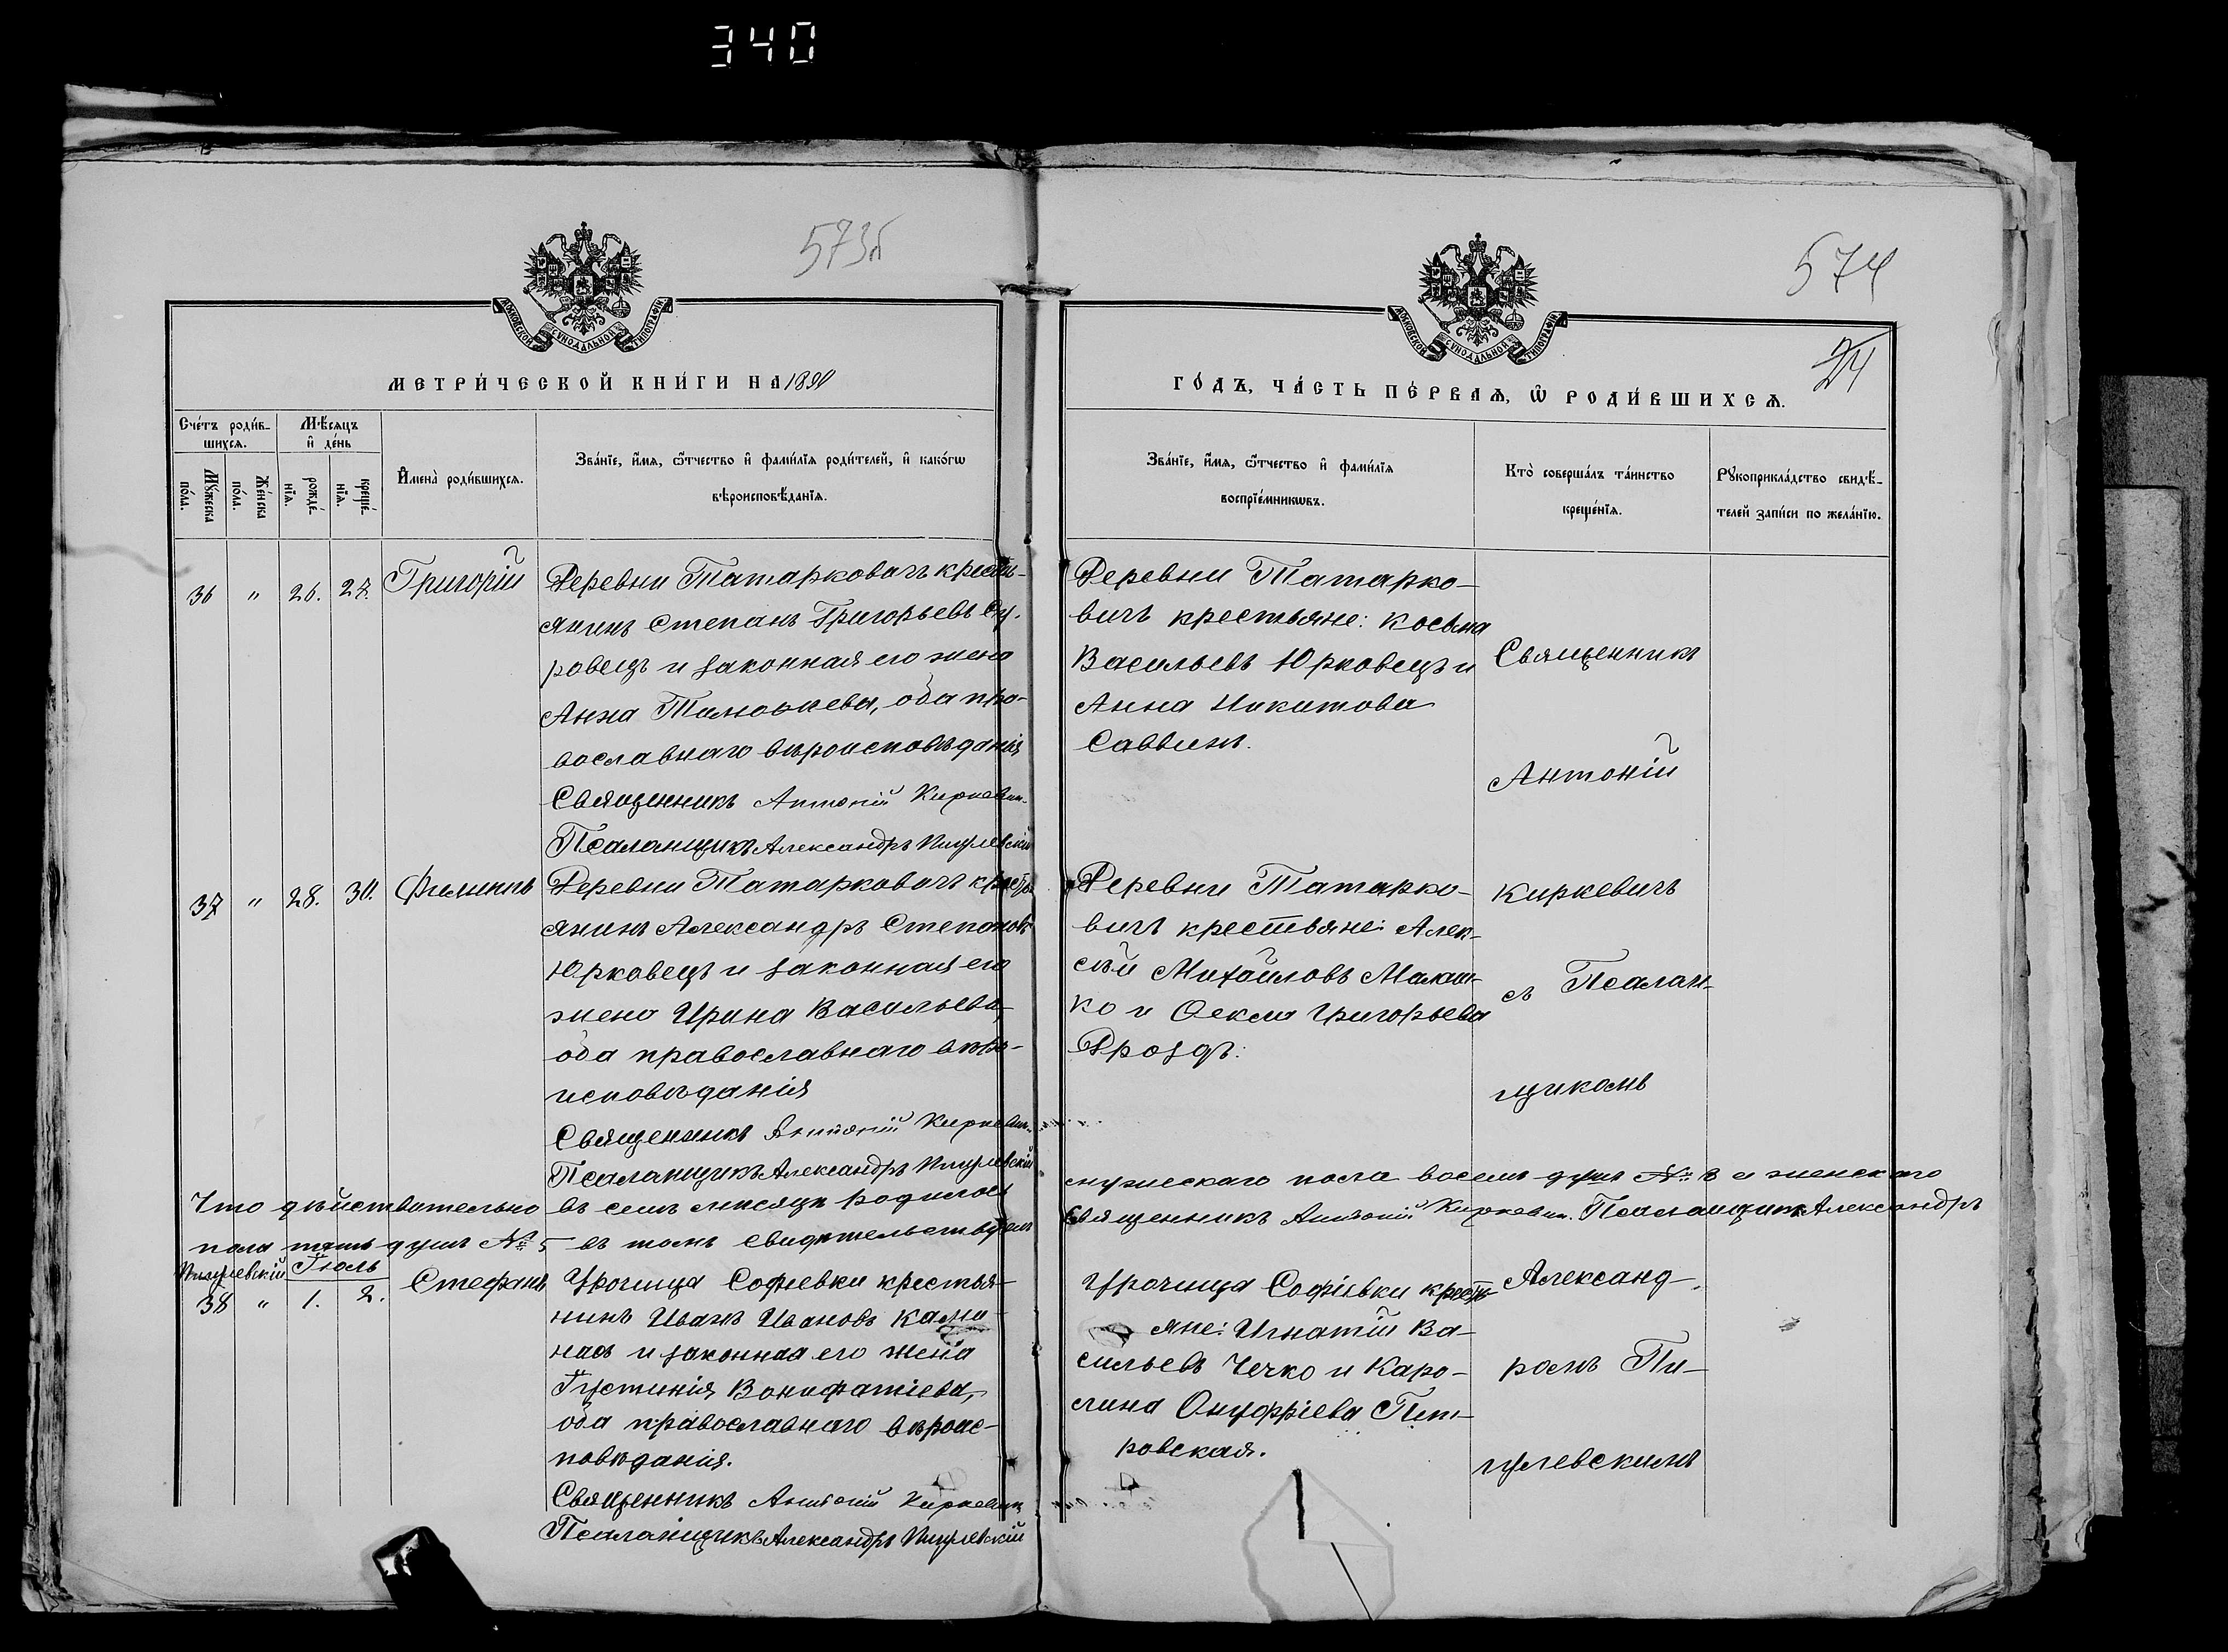 340
573б
574
24
МОСКОВСКОЙ СѴНОДАЛЬНОЙ ТИПОГРАФІИ
МОСКОВСКОЙ СѴНОДАЛЬНОЙ ТИПОГРАФІИ
МЕТРИ́ЧЕСКОЙ КНИ́ГИ НА 1890
ГО́ДЪ, ЧА́СТЬ ПЕ́РВАѦ, Ѡ РОДИ́ВШИХСѦ.
Сче́тъ роди́в-
шихсѧ.
Мѣ́сѧцъ
и҆ де́нь
Мꙋ́жеска по́ла.
Же́нска по́ла.
рожде́-
нїѧ.
креще́-
нїѧ.
И҆мена̀ роди́вшихсѧ.
Зва́нїе, и҆́мѧ, ѻ҆́тчество и҆ фами́лїѧ роди́телей, и҆ како́гѡ
вѣроисповѣ́данїѧ.
Зва́нїе, и҆́мѧ, ѻ҆́тчество и҆ фами́лїѧ
воспрїе́мникѡвъ.
Кто̀ соверша́лъ та́инство
креще́нїѧ.
Рꙋкоприкла́дство свидѣ́-
телей за́писи по жела́нїю.
36 " 26. 27. Григорій
Деревни Татарковичъ кресть-
янинъ Степанъ Григорьевъ
ровецъ и законная его жена
Анна Тимофеева, оба пра-
вославнаго вѣроисповѣданія
Священникъ Антоній Киркевич
Псаломщикъ Александръ Пигулевскій
Деревни Татарко-
вичъ крестьяне: Косьма
Васильевъ Юрковецъ и
Анна Никитова
Саввинъ.
Священникъ
Антоній
37 " 28. 30. Филиппъ
Деревни Татарковичъ кресть-
янинъ Александръ Степановъ
Юрковецъ и законная его
жена Ирина Васильева,
оба православнаго вѣро-
исповѣданія
Священникъ Антоній Киркевич
Псаломщикъ Александръ Пигулевскій
Деревни Татарко-
вичъ крестьяне: Алек-
сѣй Михайловъ
ко и Фекла Григорьева
Дроздъ:
Киркевичъ
съ Псалом-
щикомъ
Что дѣйствительно въ семъ мѣсяцѣ родилось мужескаго пола восемь душъ № 8 и женскаго
пола пять душъ № 5 въ томъ свидѣтельствуемъ Священникъ Антоній Киркевич. Псаломщикъ Александръ
Пигулевскій
Іюль
38 " 1. 2. Стефанъ
Урочища Софіевки крестья-
нинъ Иванъ Ивановъ
и законная его жена
Іустинія Вонифатіева,
оба православнаго вѣроис-
повѣданія.
Священникъ Антоній Киркевич
Псаломщикъ Александръ Пигулевскій
Урочища Софіевки кресть-
яне: Игнатій Ва-
сильевъ Чечко и Каро-
лина Онуфріева Пет-
ровская.
Александ-
ромъ Пи-
гулевскимъ